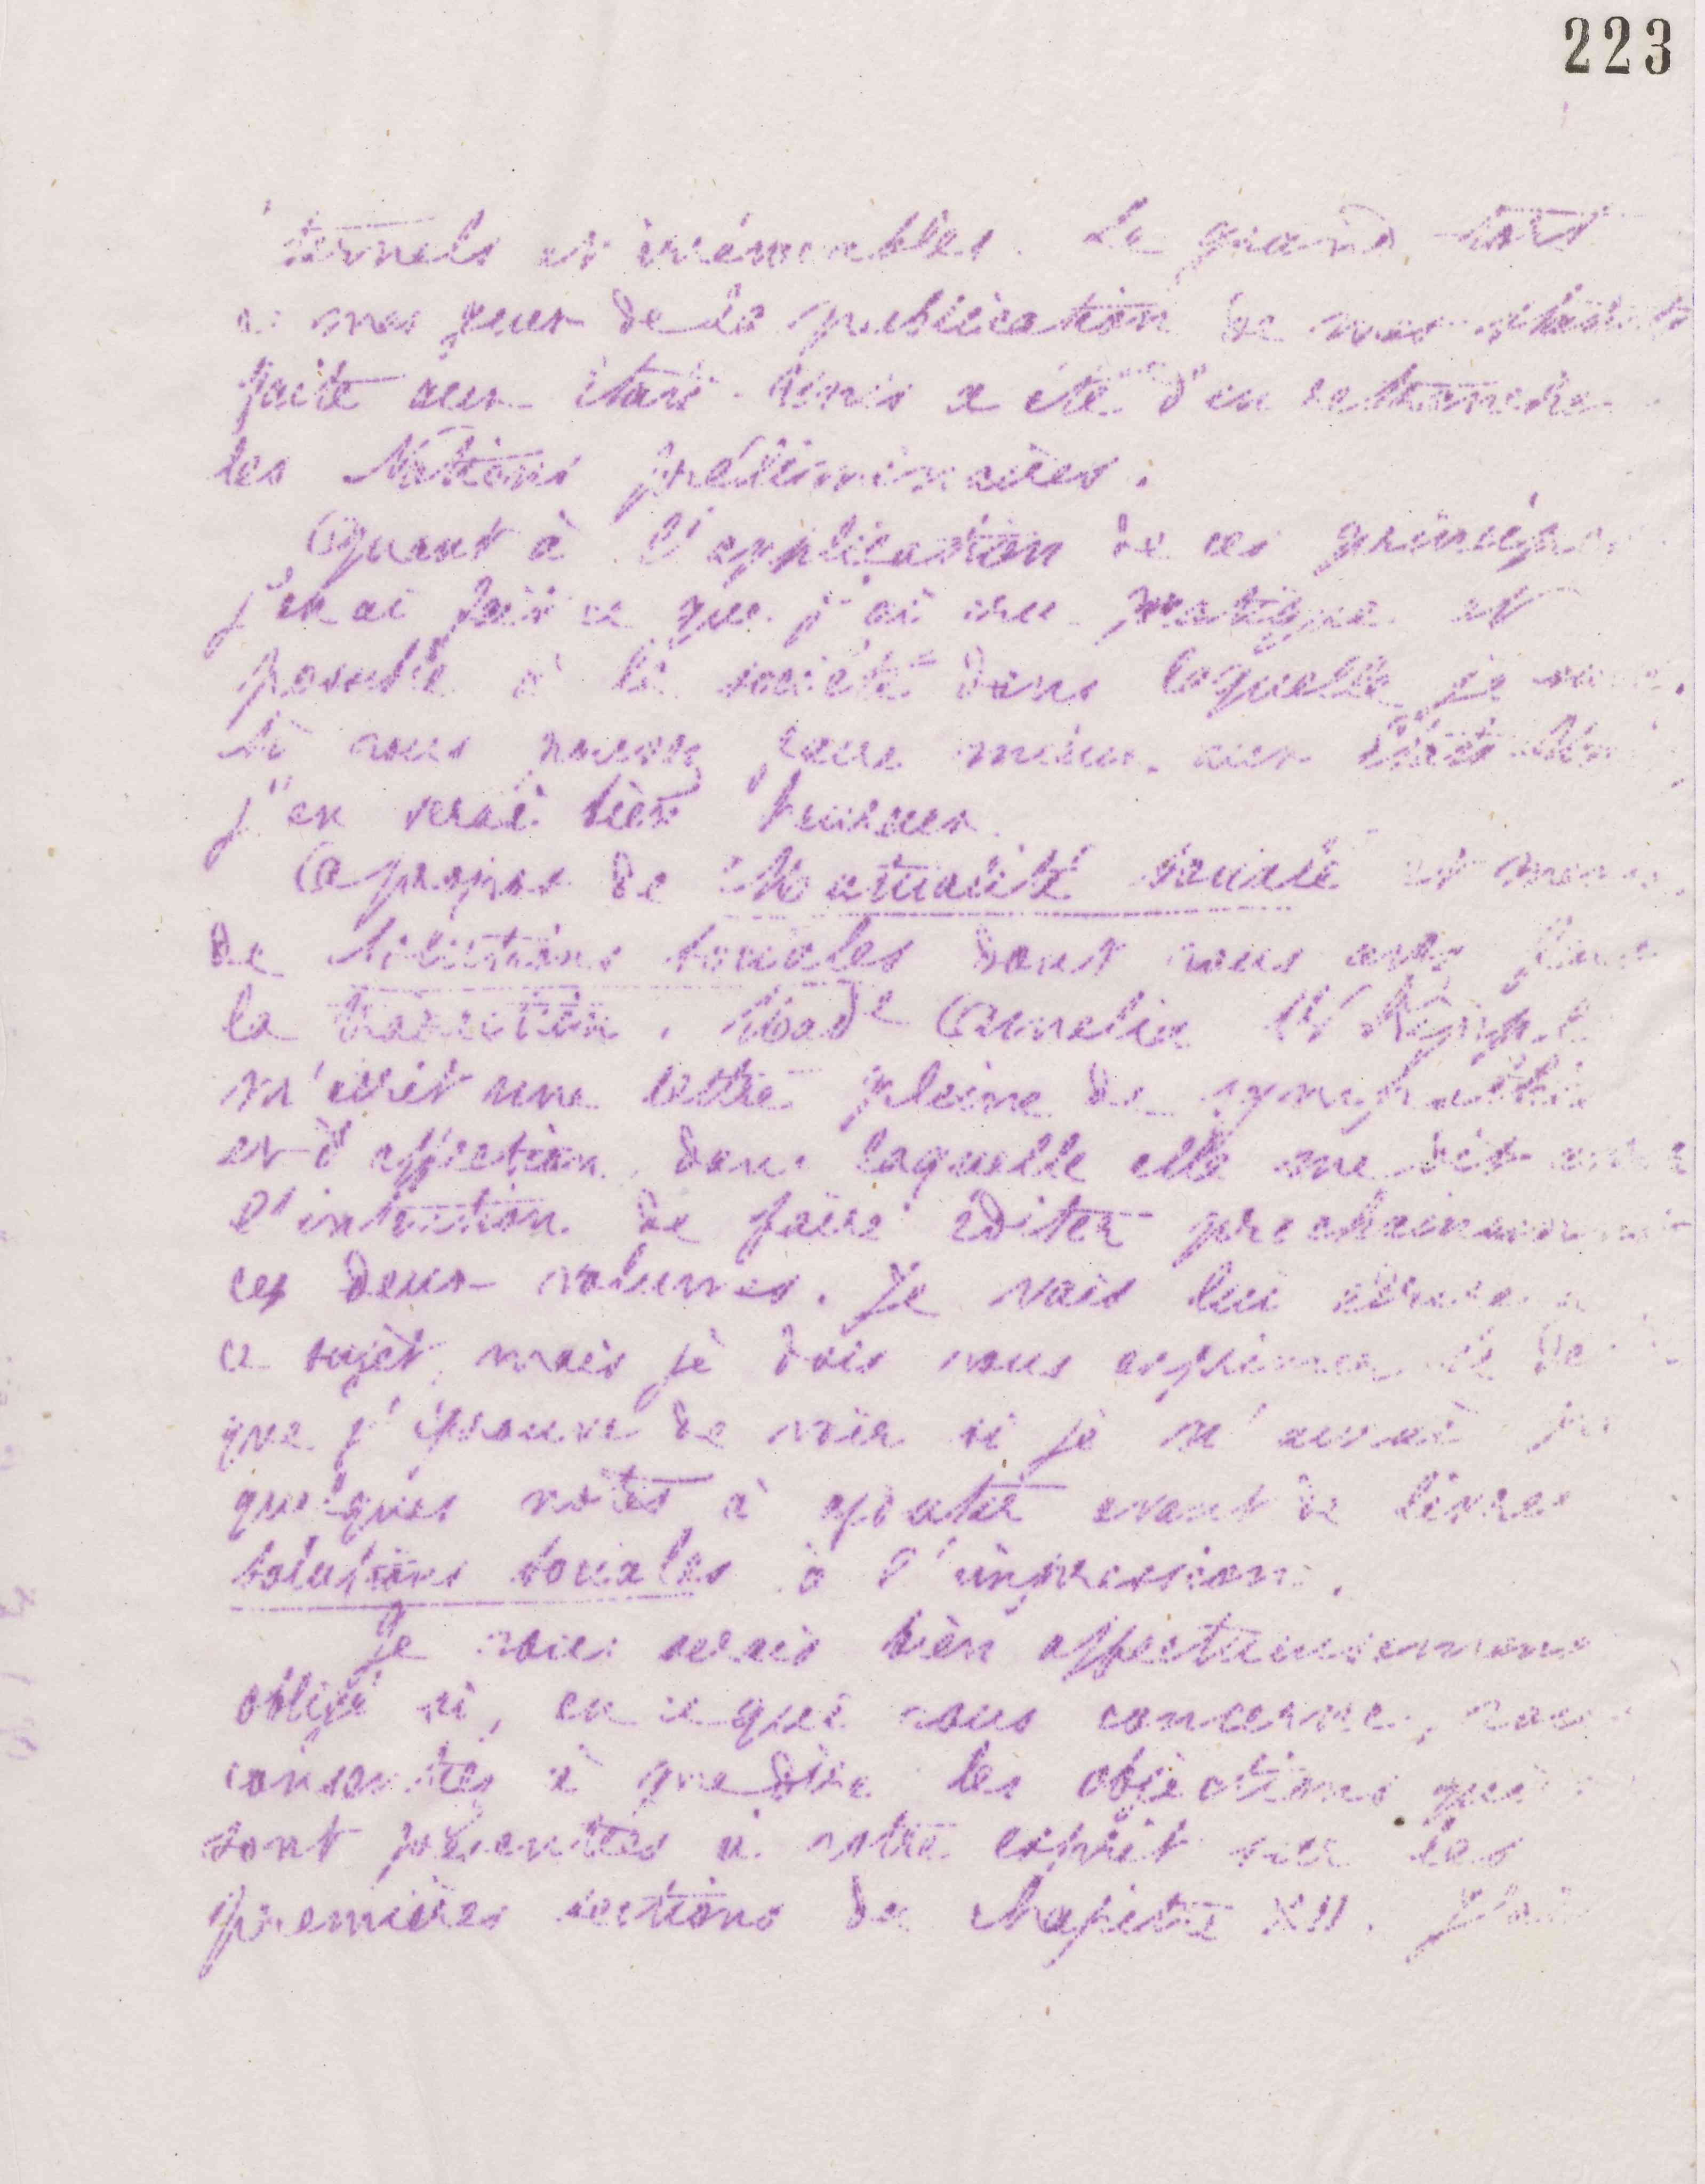 223
ternels et irrémuables. Le grand tort
à mes yeux de la publication de mes statuts
faite aux États-Unis a été d'en retrancher
les Notions préliminaires.
Quant à l'application de ces principes
j'en ai fait ce que j'ai cru pratique et
possible à la société dans laquelle je
Si vous pouvez faire mieux aux États-Unis
j'en serai bien heureux.
A propos de Mutualité sociale et
de Solutions sociales dont vous avez
la traduction, Made Amelia
m'écrit une lettre pleine de sympathie
et d'affection dans laquelle elle me dit
l'intention de faire éditer prochainement
ces deux volumes. Je vais lui écrire à
ce sujet, mais je dois vous exprimer le
que j'éprouve de voir si je n'aurai pas
quelques notes à ajouter avant de livrer
Solutions sociales à l'impression.
Je vous serais bien affectueusement
obligé si, en ce qui vous concerne, vous
consentez à me dire les objections qui
sont présentées à votre esprit sur les
premières sections du chapitre XII. J'ai